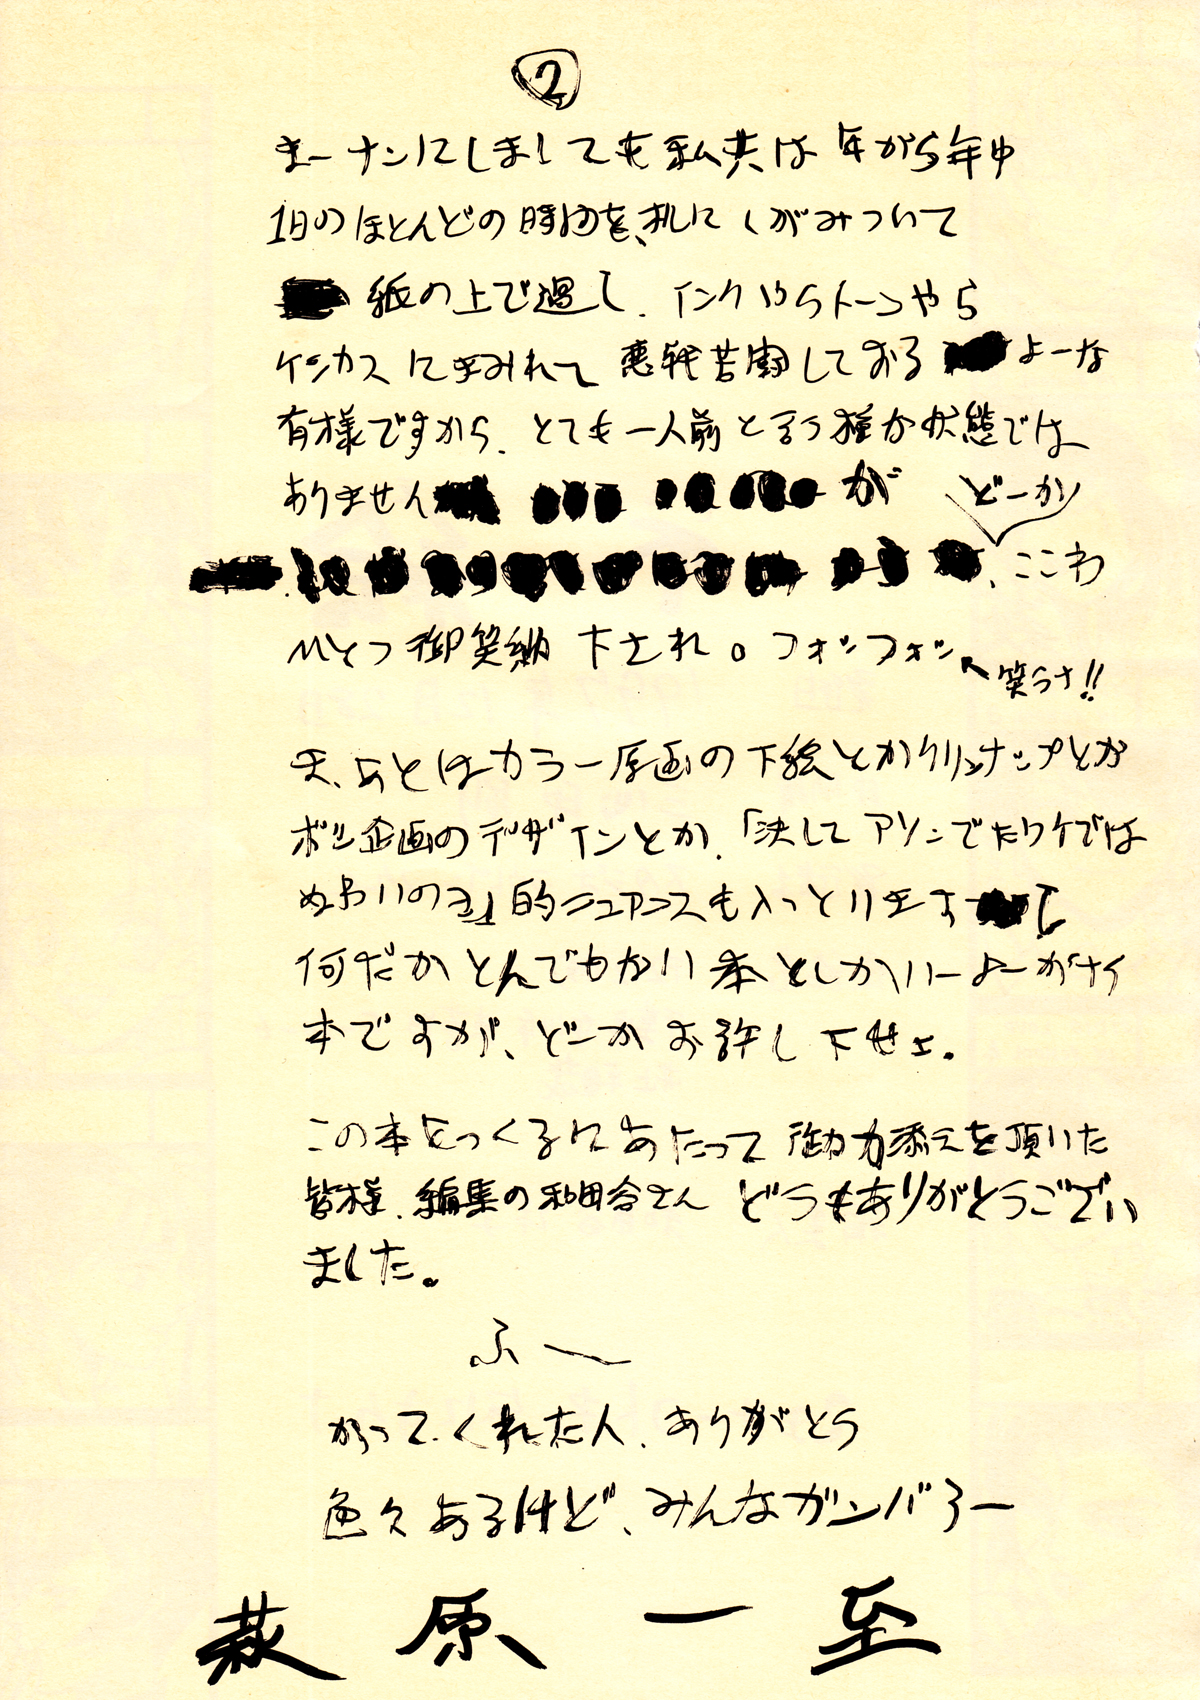 ②
まーナンにしましても私共は年がら年中
1日のほとんどの時間を、机にくがみついて
紙の上で過し、インクやらトーンやら
ケシカスにまみれて悪戦苦闘しておるよーな
有様ですから、とても一人前と言う種な状態では
ありませんが どーか
、ここわ
ひとつ御笑納下され。フォンフォン ←笑うナ!!
ま、あとはカラー原画の下絵とかクリンナップとか
ボツ企画のデザインとか、「決してアソンでたワケでは
ぬぁいのヨ」的ニュアンスも入っとりまして
何だかとんでもない本としかいーよーがナイ
本ですが、どーかお許し下せェ。
この本をつくるにあたって御力添えを頂いた
皆様、編集の和田谷さんどうもありがとうござい
ました。
ふ〜
かってくれた人、ありがとう
色々あるけど、みんなガンバろー
萩原一至